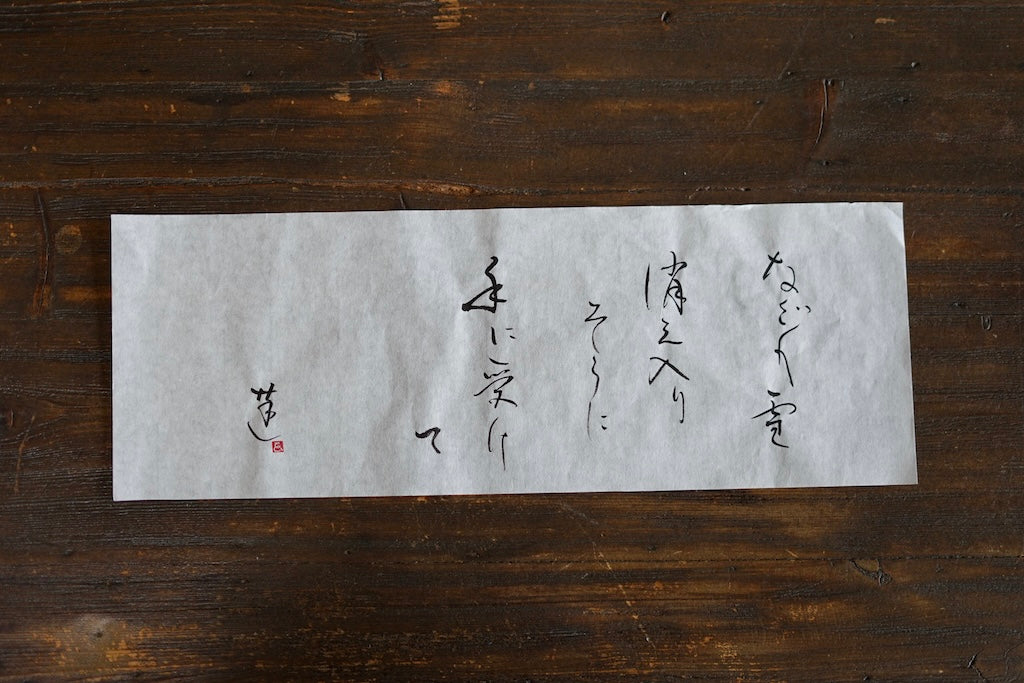 なごり雪
消え入り
そうに
手に受け
て
蓮